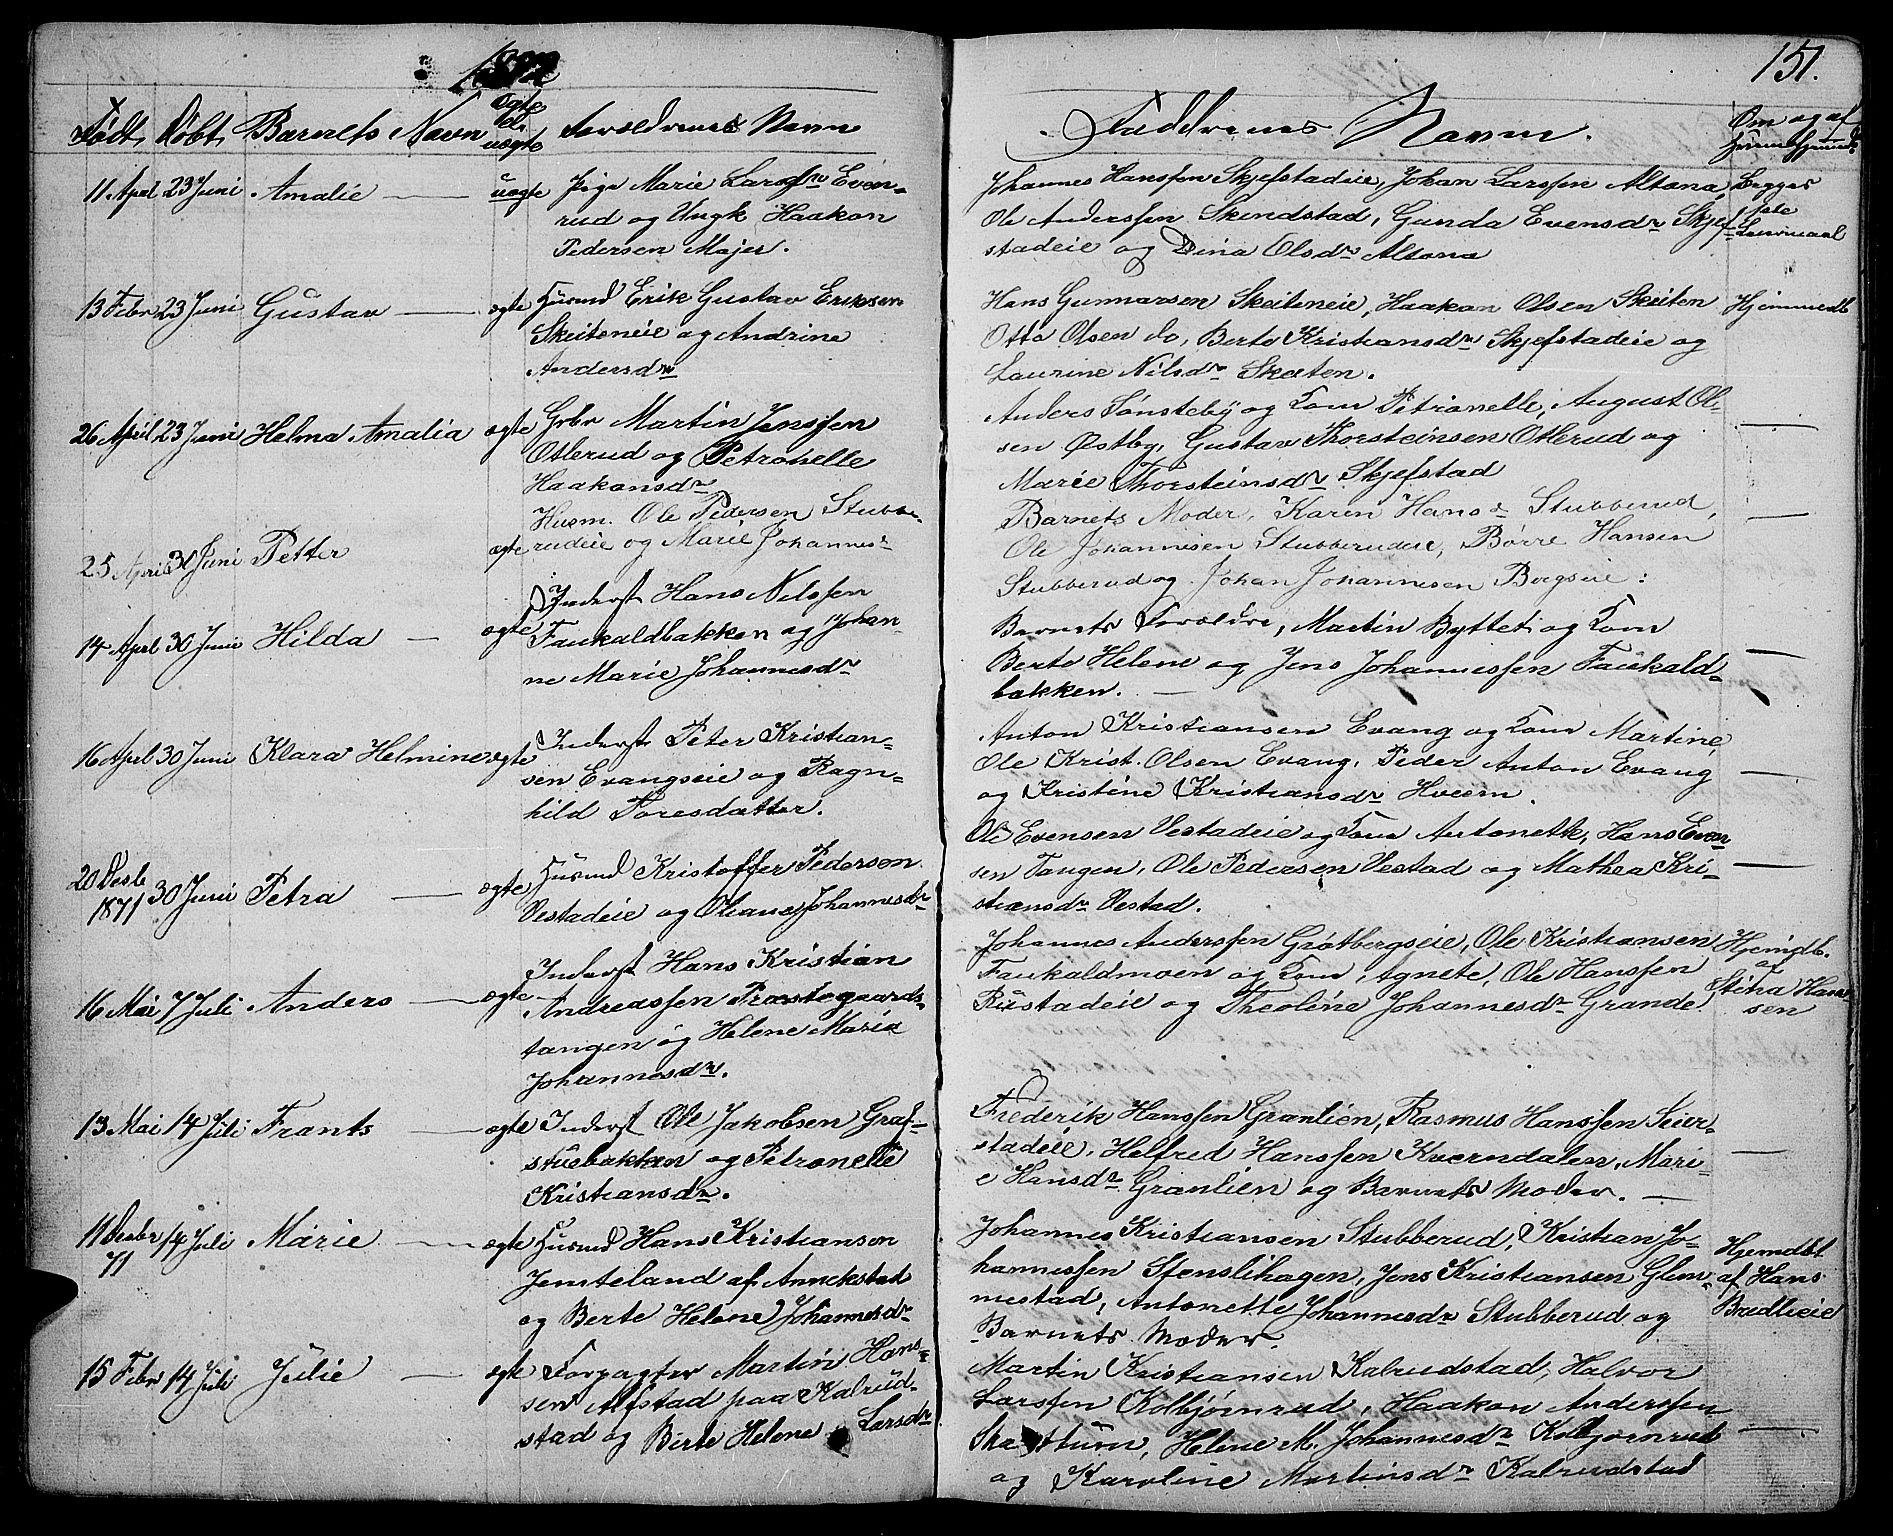 1872
151.
Født Døbt Barnets Navn Ægte el. uægte Forældrenes Navn
Faddrenes Navn.
Om og af
11 April 23 Juni Amalie uægte Pige Marie Larsdr Even-
rud og Ungk Haakon
Pedersen Majer.
Johannes Hanssen Skjefstadeie, Johan Larssen Altona
Ole Anderssen Skindstad, Gunda Evensdr Skjef-
stadeie og Dina Olsdr Altona
Begges
13 Febr 23 Juni Gustav ægte Husmd Erik Gustav Eriksen
Skeiteneie og Andrine
Andersdr
Hans Gunnarsen Skeiteneie, Haakon Olsen Skeiten
Otto Olsen do, Berte Kristiansdr Skjefstadeie og
Laurine Nilsdr Skeiten.
Hjemmedb
26 April 23 Juni Helma Amalia ægte Grbr Martin Jenssen
Otlerud og Petronelle
Haakonsdr
Anders Sønsteby og Kone Petronelle, August Ol-
sen Østby, Gustav Thorsteinsen Otlerud og
Marie Thorsteinsdr Skjefstad
25 April 30 Juni Petter ægte Husm. Ole Pedersen Stubbe-
rudeie og Marie Johannes-
Barnets Moder, Karen Hansdr Stubberud,
Ole Johannesen Stubberudeie, Børre Hansen
Stubberud og Johan Johannesen Bergseie:
14 April 30 Juni Hilda ægte Inderst Hans Nilssen
Faukaldbakken og Johan-
ne Marie Johannesdr
Barnets Forældre, Martin Byttet og Kone
Berte Helene og Jens Johannessen Faukald-
bakken.
16 April 30 Juni Klara Helmine ægte Inderst Peter Kristian-
sen Evangseie og Ragn-
hild Toresdatter.
Anton Kristiansen Evang og Kone Martine
Ole Krist. Olsen Evang, Peder Anton Evang
og Kristine Kristiansdr Hveem.
20 Desb 1871 30 Juni Petra ægte Husmd Kristoffer Pedersen
Vestadeie og Oliane Johannesdr
Ole Evensen Vestadeie og Kone Antonette, Hans Even-
sen Tangen, Ole Pedersen Vestad og Mathea Kri-
stiansdr Vestad.
16 Mai 7 Juli Anders ægte Inderst Hans Kristian
Andreassen Præstegaards-
tangen og Helene Maria
Johannesdr.
Johannes Anderssen Grøtbergseie, Ole Kristiansen
Faukaldmoen og Kone Agnete, Ole Hanssen
Rustadeie og Theoline Johannesdr Grande.
Hjemdb.
af
Stina Han-
sen
13 Mai 14 Juli Frants ægte Inderst Ole Jakobsen Graf-
stuebakken og Petronelle
Kristiansdr.
Frederik Hanssen Grønlien, Rasmus Hanssen Seier-
stadeie, Helfred Hanssen Kverndalen, Mari-
e Hansdr Grønlien og Barnets Moder.
11 Desbr 71 14 Juli Marie ægte Husmd Hans Kristiansen
Jemteland af Annekstad
og Berte Helene Johannesdr
Johannes Kristiansen Stubberud, Kristian Jo-
hannessen Stenslihagen, Jens Kristiansen Glem-
mestad, Antonette Johannesdr Stubberud og
Barnets Moder.
Hjemdbt
af Hans
Brudlieie
15 Febr 14 Juli Julie ægte Forpagter Martin Hans-
sen Alfstad paa Kalrud-
stad og Berte Helene Larsdr
Martin Kristiansen Kalrudstad, Halvor
Larssen Kolbjørnrud, Haakon Anderssen
Helene M. Johannesdr Kolbjørnrud
og Karoline Martinsdr Kalrudstad